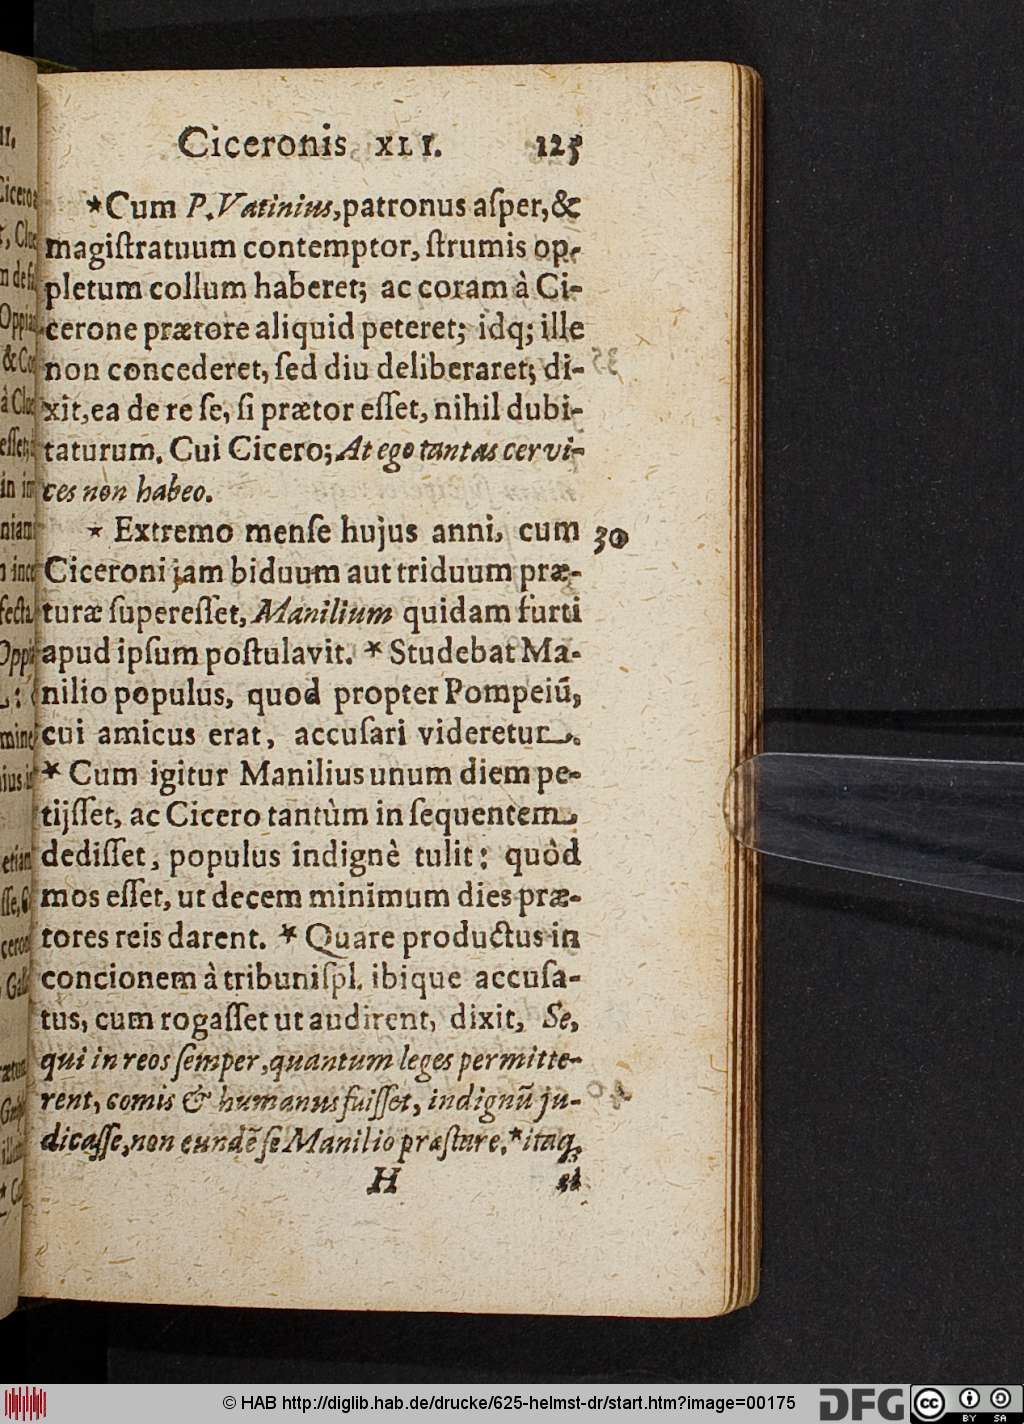 Ciceronis XLI. 125
*Cum P. Vatinius, patronus aſper, &
magiſtratuum contemptor, ſtrumis op-
pletum collum haberet; ac coram à Ci-
cerone prætore aliquid peteret; idq; ille
non concederet, ſed diu deliberaret; di-
xit, ea de re ſe, ſi prætor eſſet, nihil dubi-
taturum. Cui Cicero; At ego tantas cervi-
ces non habeo.
* Extremo menſe hujus anni, cum 30
Ciceroni jam biduum aut triduum præ-
turæ ſupereſſet, Manilium quidam furti
apud ipſum poſtulavit. * Studebat Ma-
nilio populus, quod propter Pompeiũ,
cui amicus erat, accuſari videretur.
* Cum igitur Manilius unum diem pe-
tijſſet, ac Cicero tantùm in ſequentem
dediſſet, populus indignè tulit: quòd
mos eſſet, ut decem minimum dies præ-
tores reis darent. * Quare productus in
concionem à tribunis pl. ibique accuſa-
tus, cum rogaſſet ut audirent, dixit, Se,
qui in reos ſemper, quantum leges permitte-
rent, comis & humanus fuiſſet, indignũ ju-
dicaſſe, non eundẽ ſe Manilio præſtare. * itaq;
H
© HAB http://diglib.hab.de/drucke/625-helmst-dr/start.htm?image=00175
DFG
cc
BY SA